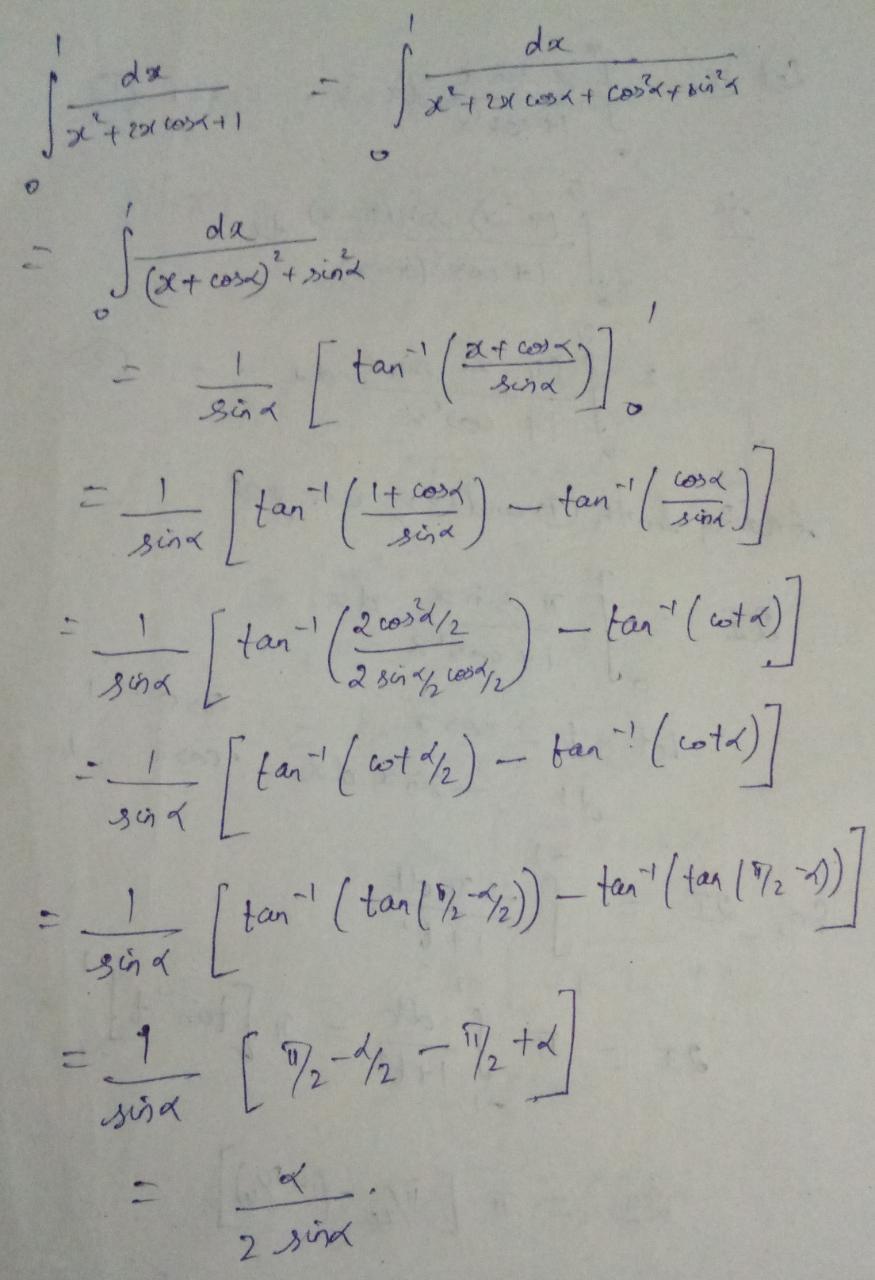 ∫₀¹ dx / (x² + 2x cosα + 1) = ∫₀¹ dx / (x² + 2x cosα + cos²α + sin²α)
= ∫₀¹ dx / ((x + cosα)² + sin²α)
= 1/sinα [tan⁻¹((x + cosα)/sinα)]₀¹
= 1/sinα [tan⁻¹((1 + cosα)/sinα) − tan⁻¹(cosα/sinα)]
= 1/sinα [tan⁻¹(2cos²α/2 / (2 sinα/2 cosα/2)) − tan⁻¹(cotα)]
= 1/sinα [tan⁻¹(cot α/2) − tan⁻¹(cotα)]
= 1/sinα [tan⁻¹(tan(π/2 − α/2)) − tan⁻¹(tan(π/2 − α))]
= 1/sinα [π/2 − α/2 − π/2 + α]
= α / (2 sinα).